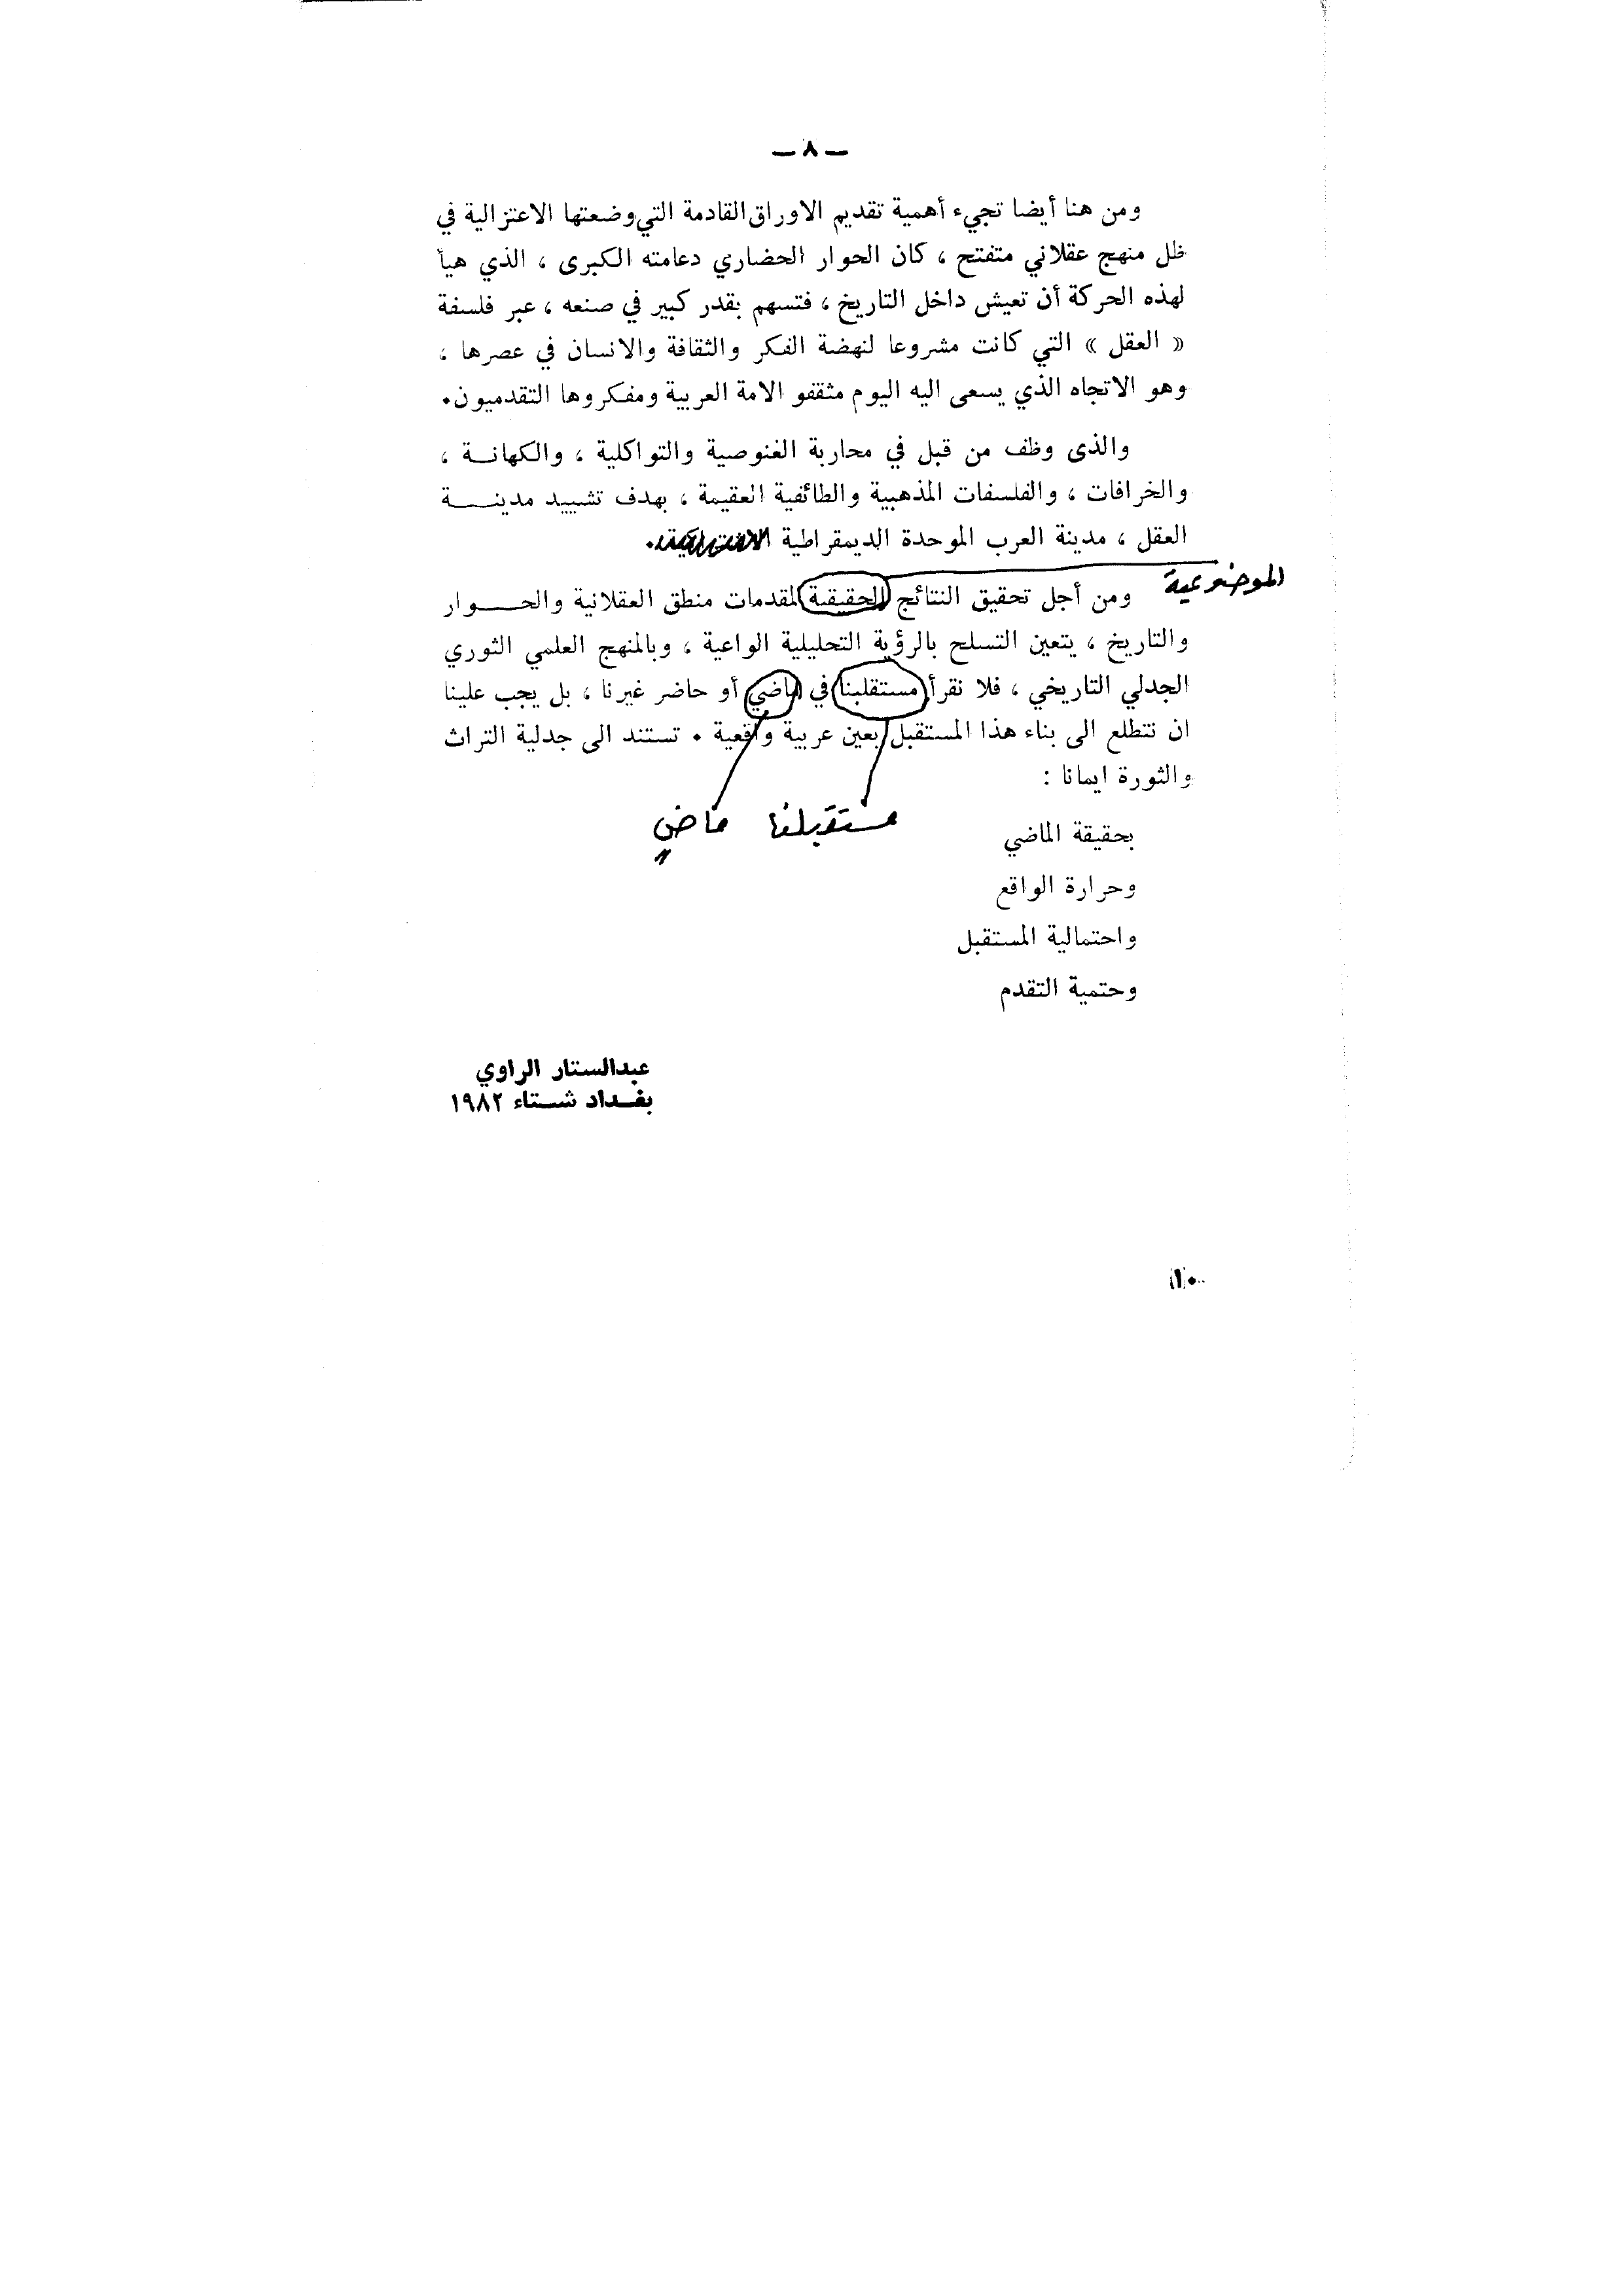 — ٨ —
ومن هنا أيضا تجيء أهمية تقديم الاوراق القادمة التي وضعتها الاعتزالية في
ظل منهج عقلاني متفتح ، كان الحوار الحضاري دعامته الكبرى ، الذي هيأ
لهذه الحركة أن تعيش داخل التاريخ ، فتسهم بقدر كبير في صنعه ، عبر فلسفة
« العقل » التي كانت مشروعا لنهضة الفكر والثقافة والانسان في عصرها ،
وهو الاتجاه الذي يسعى اليه اليوم مثقفو الامة العربية ومفكروها التقدميون.
والذى وظف من قبل في محاربة الغنوصية والتواكلية ، والكهانـة ،
والخرافات ، والفلسفات المذهبية والطائفية العقيمة ، بهدف تشييد مدينــة
العقل ، مدينة العرب الموحدة الديمقراطية
الموضوعية
ومن أجل تحقيق النتائج الحقيقية لمقدمات منطق العقلانية والحــوار
والتاريخ ، يتعين التسلح بالرؤية التحليلية الواعية ، وبالمنهج العلمي الثوري
الجدلي التاريخي ، فلا نقرأ مستقلبنا في ماضي أو حاضر غيرنا ، بل يجب علينا
ان نتطلع الى بناء هذا المستقبل بعين عربية واقعية . تستند الى جدلية التراث
والثورة ايمانا :
مستقبلنا ماضٍ
بحقيقة الماضي
وحرارة الواقع
واحتمالية المستقبل
وحتمية التقدم
عبدالستار الراوي
بغـداد شـتاء ١٩٨٢